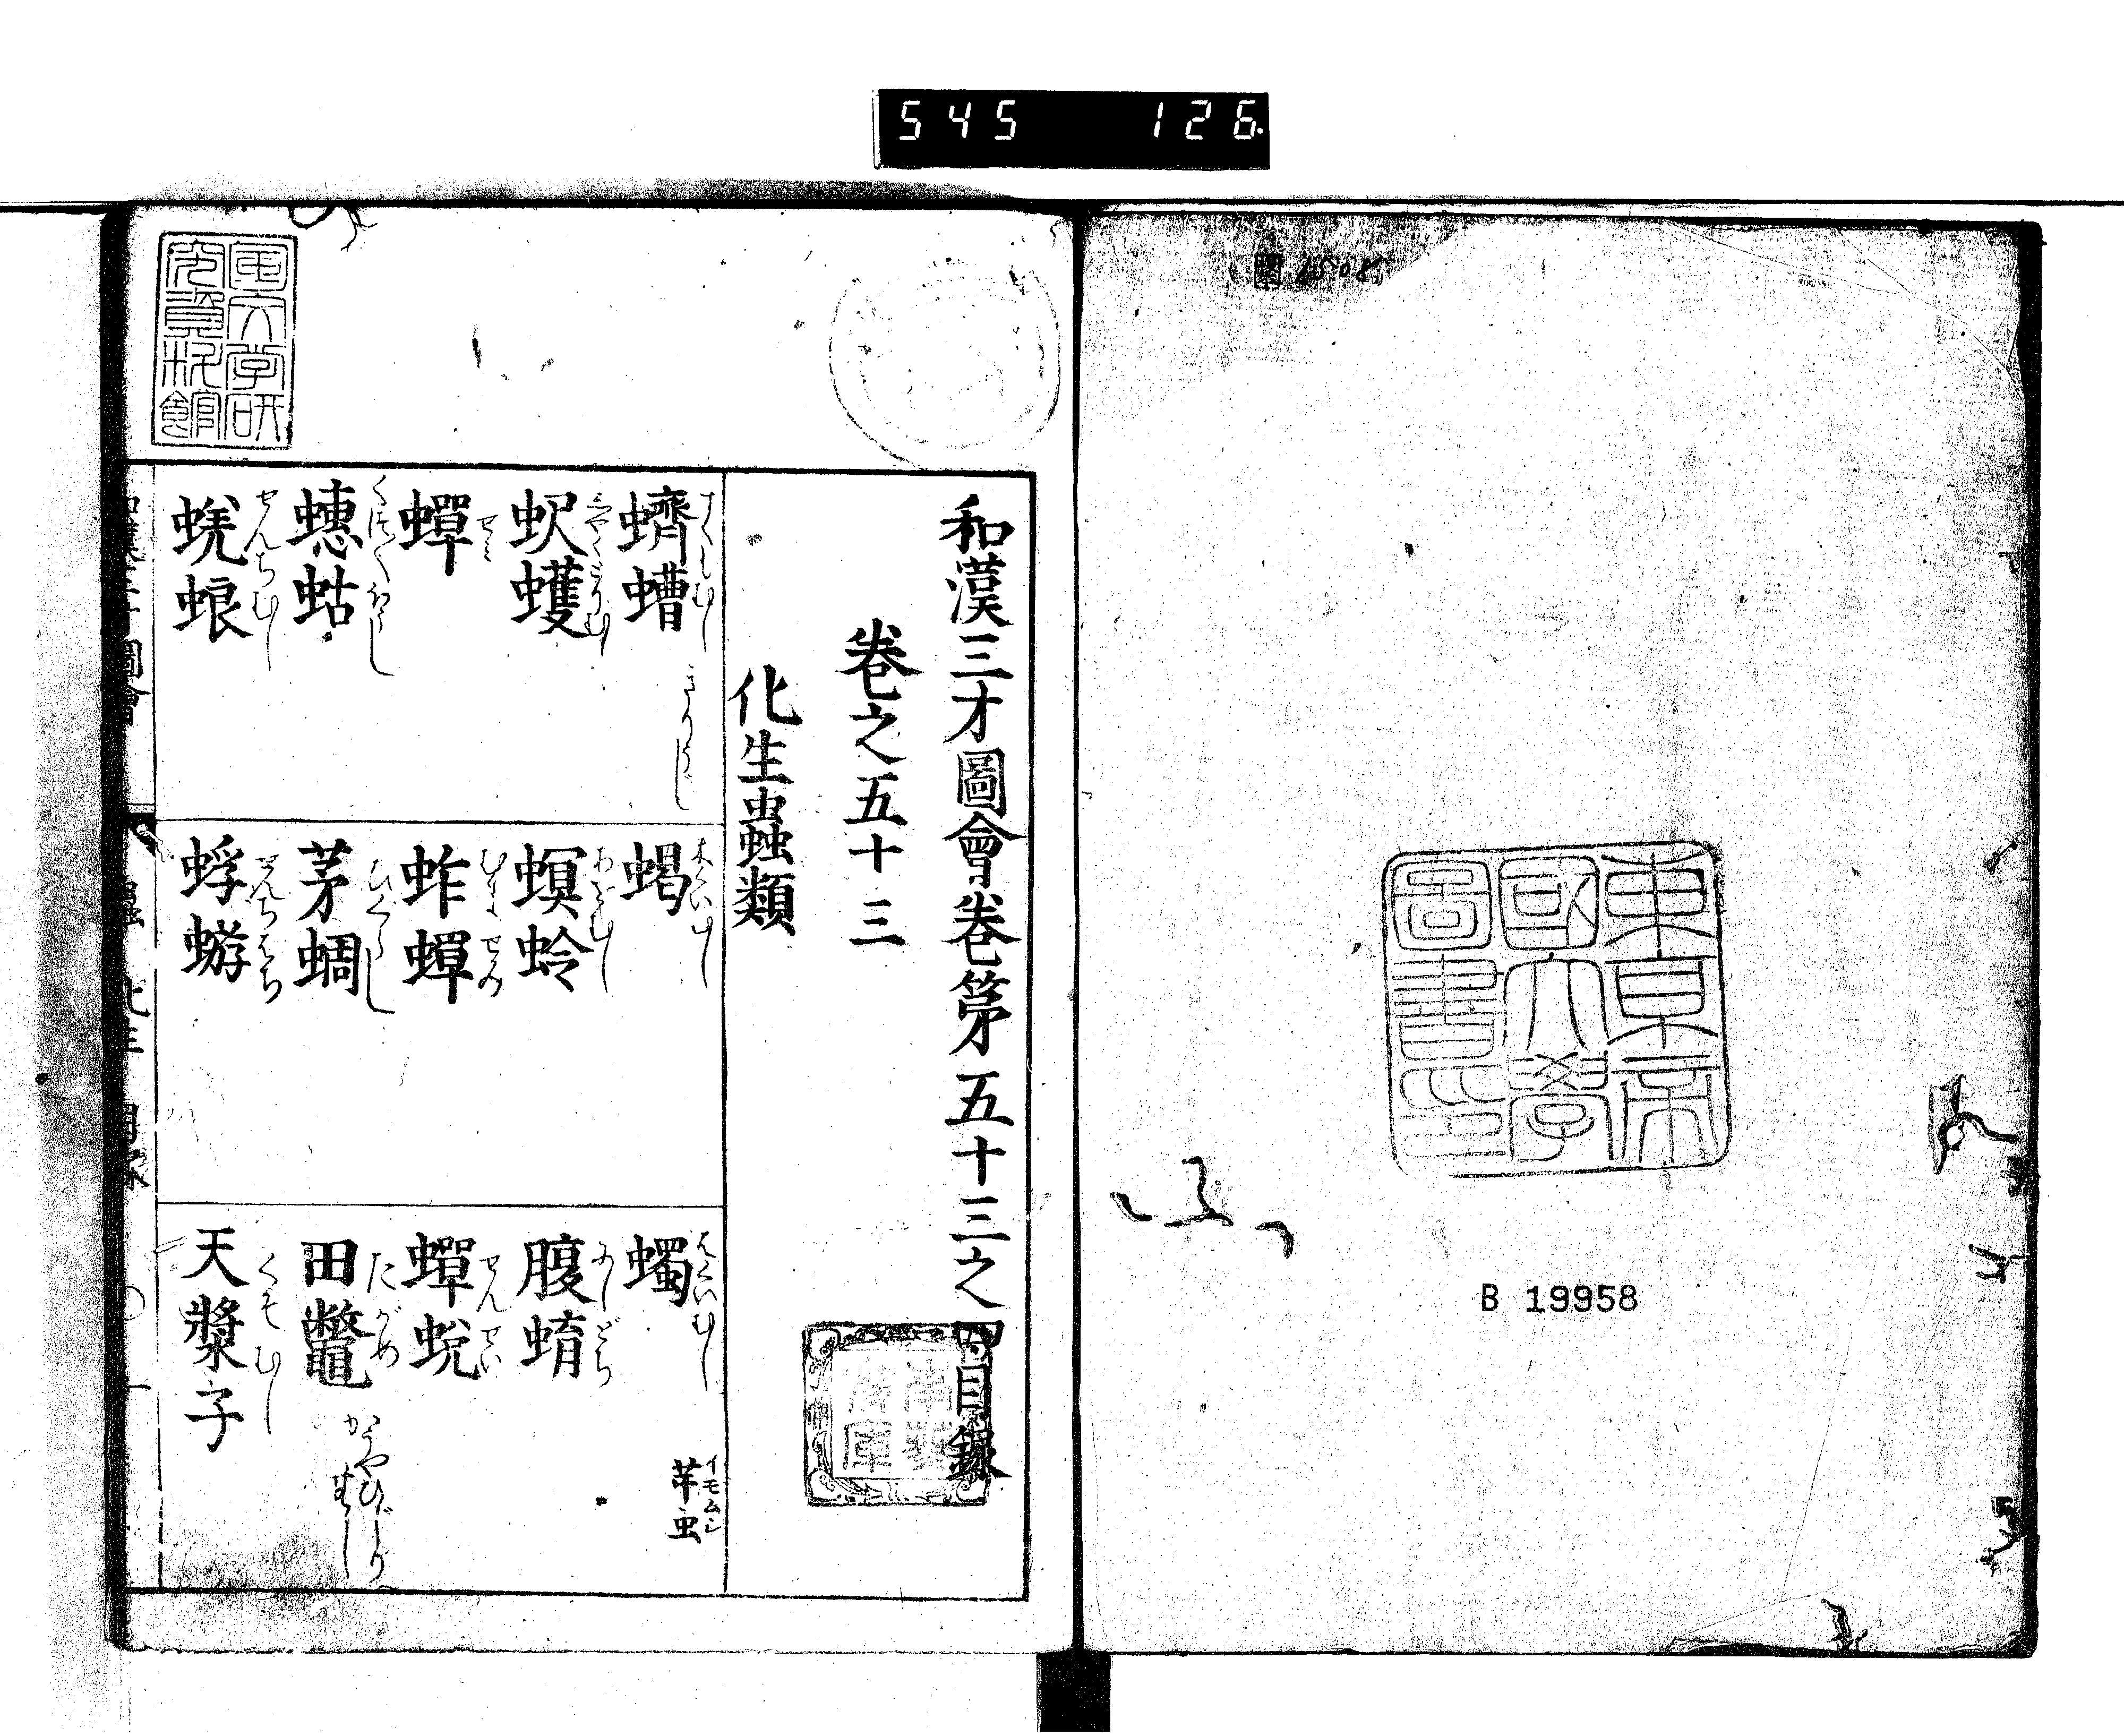 545 126
東京帝
國大學
圖書印
B 19958
和漢三才圖會卷第五十三之四目録
卷之五十三
化生蟲類
蠐螬 すくもむし きりうじ
蝎 木くいむし
蠋 はくいむし 芋虫 イモムシ
蚇蠖 しやくとりむし
螟蛉 あをむし
腹蜟 にしどち
蟬 せミ
蚱蟬 むまぜみ
蟬蛻 せんぜい
蟪蛄 くつくつほうし
茅蜩 ひぐらし
田鼈 たがめ
蜣蜋 せんちむし
蜉蝣 せんちばち
天漿子 くそむし
國文学研
究資料館